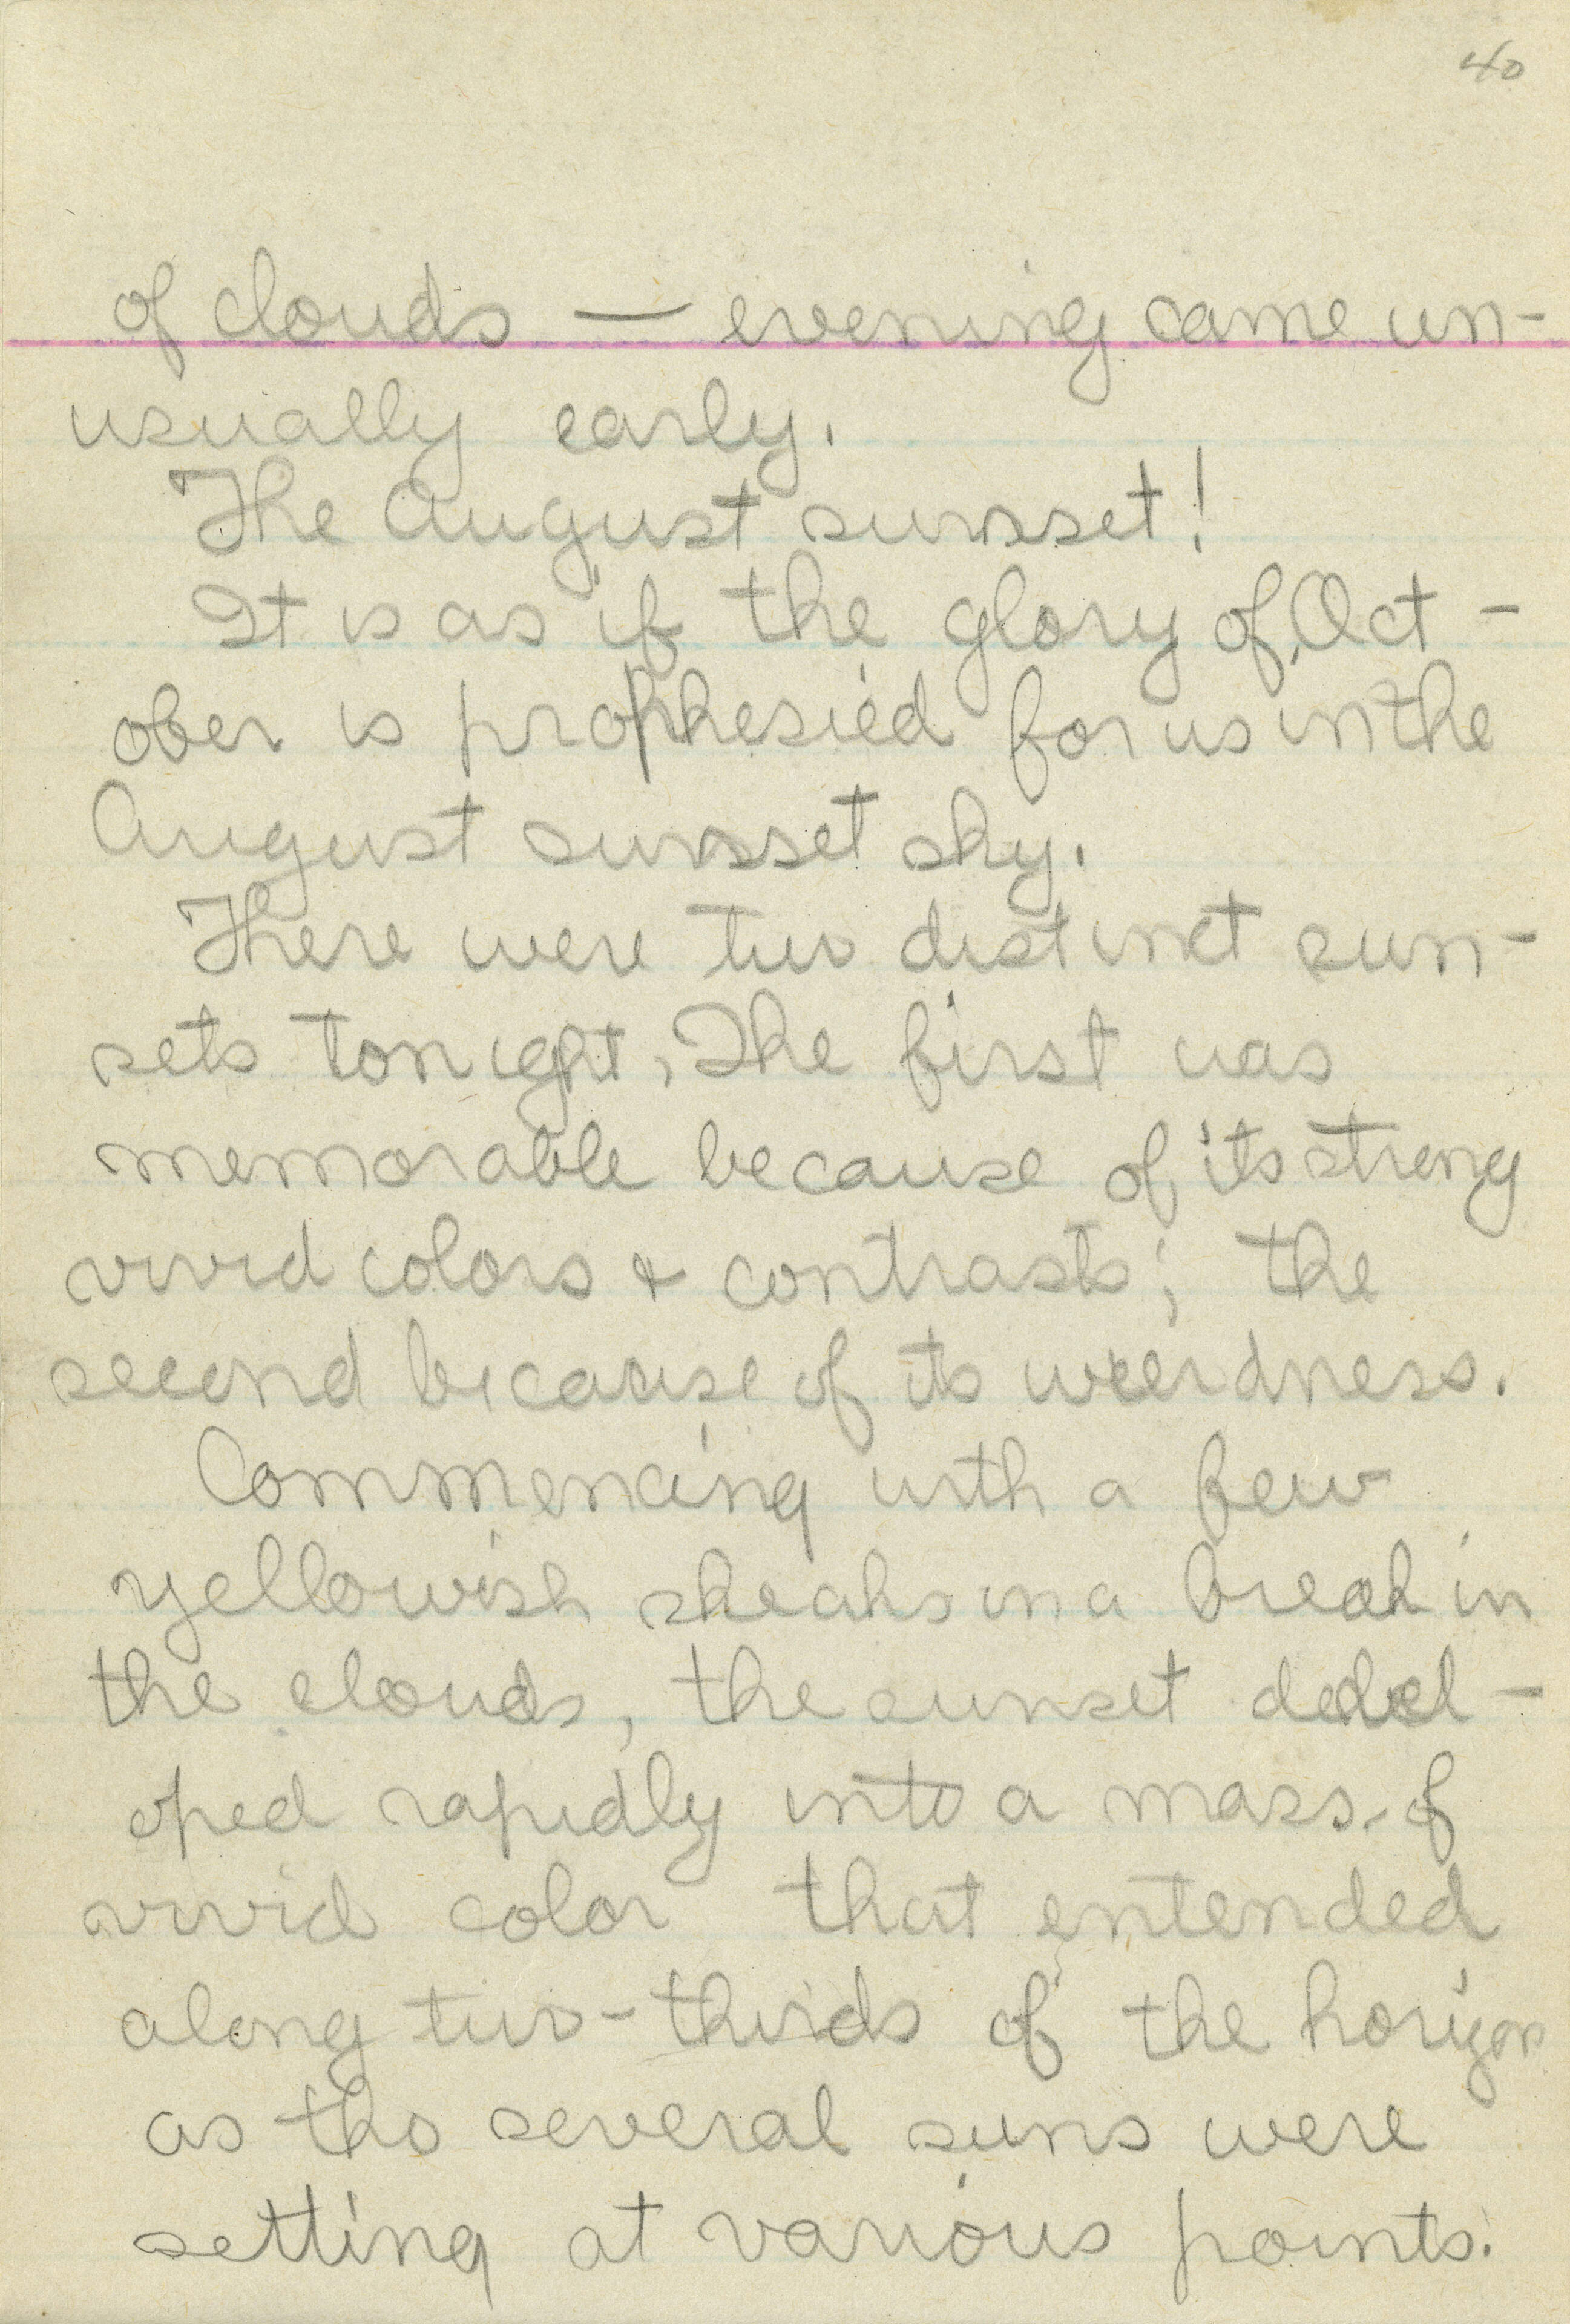 40
of clouds — evening came un-
usually early.
The August sunset!
It is as if the glory of Oct-
ober is prophesied for us in the
August sunset sky.
There were two distinct sun-
sets tonight, The first was
memorable because of its strong
vivid colors & contrasts; the
second because of its weirdness.
Commencing with a few
yellowish streaks in a break in
the clouds, the sunset devel-
oped rapidly into a mass of
vivid color that extended
along two-thirds of the horizon
as tho several suns were
setting at various points.